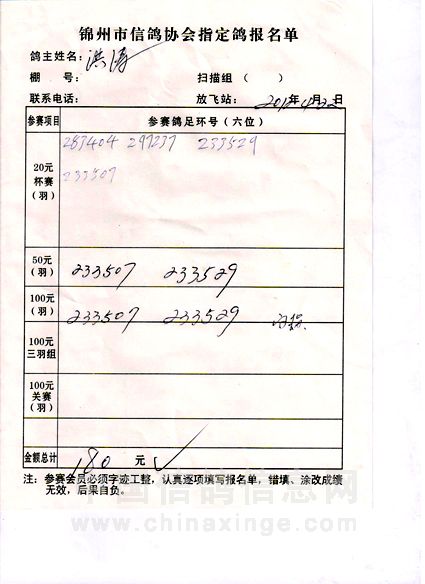 锦州市信鸽协会指定鸽报名单
鸽主姓名：洪涛
棚 号： 扫描组（ ）
联系电话： 放飞站： 年4月22日
参赛项目 参赛鸽足环号（六位）
20元杯赛（羽） 283404 297237 233529
233507
50元（羽） 233507 233529
100元（羽） 233507 233529
100元三羽组
100元关赛（羽）
金额总计 180 元
注：参赛会员必须字迹工整，认真逐项填写报名单，错填、涂改成绩
无效，后果自负。
中国信鸽信息网
www.chinaxinge.com